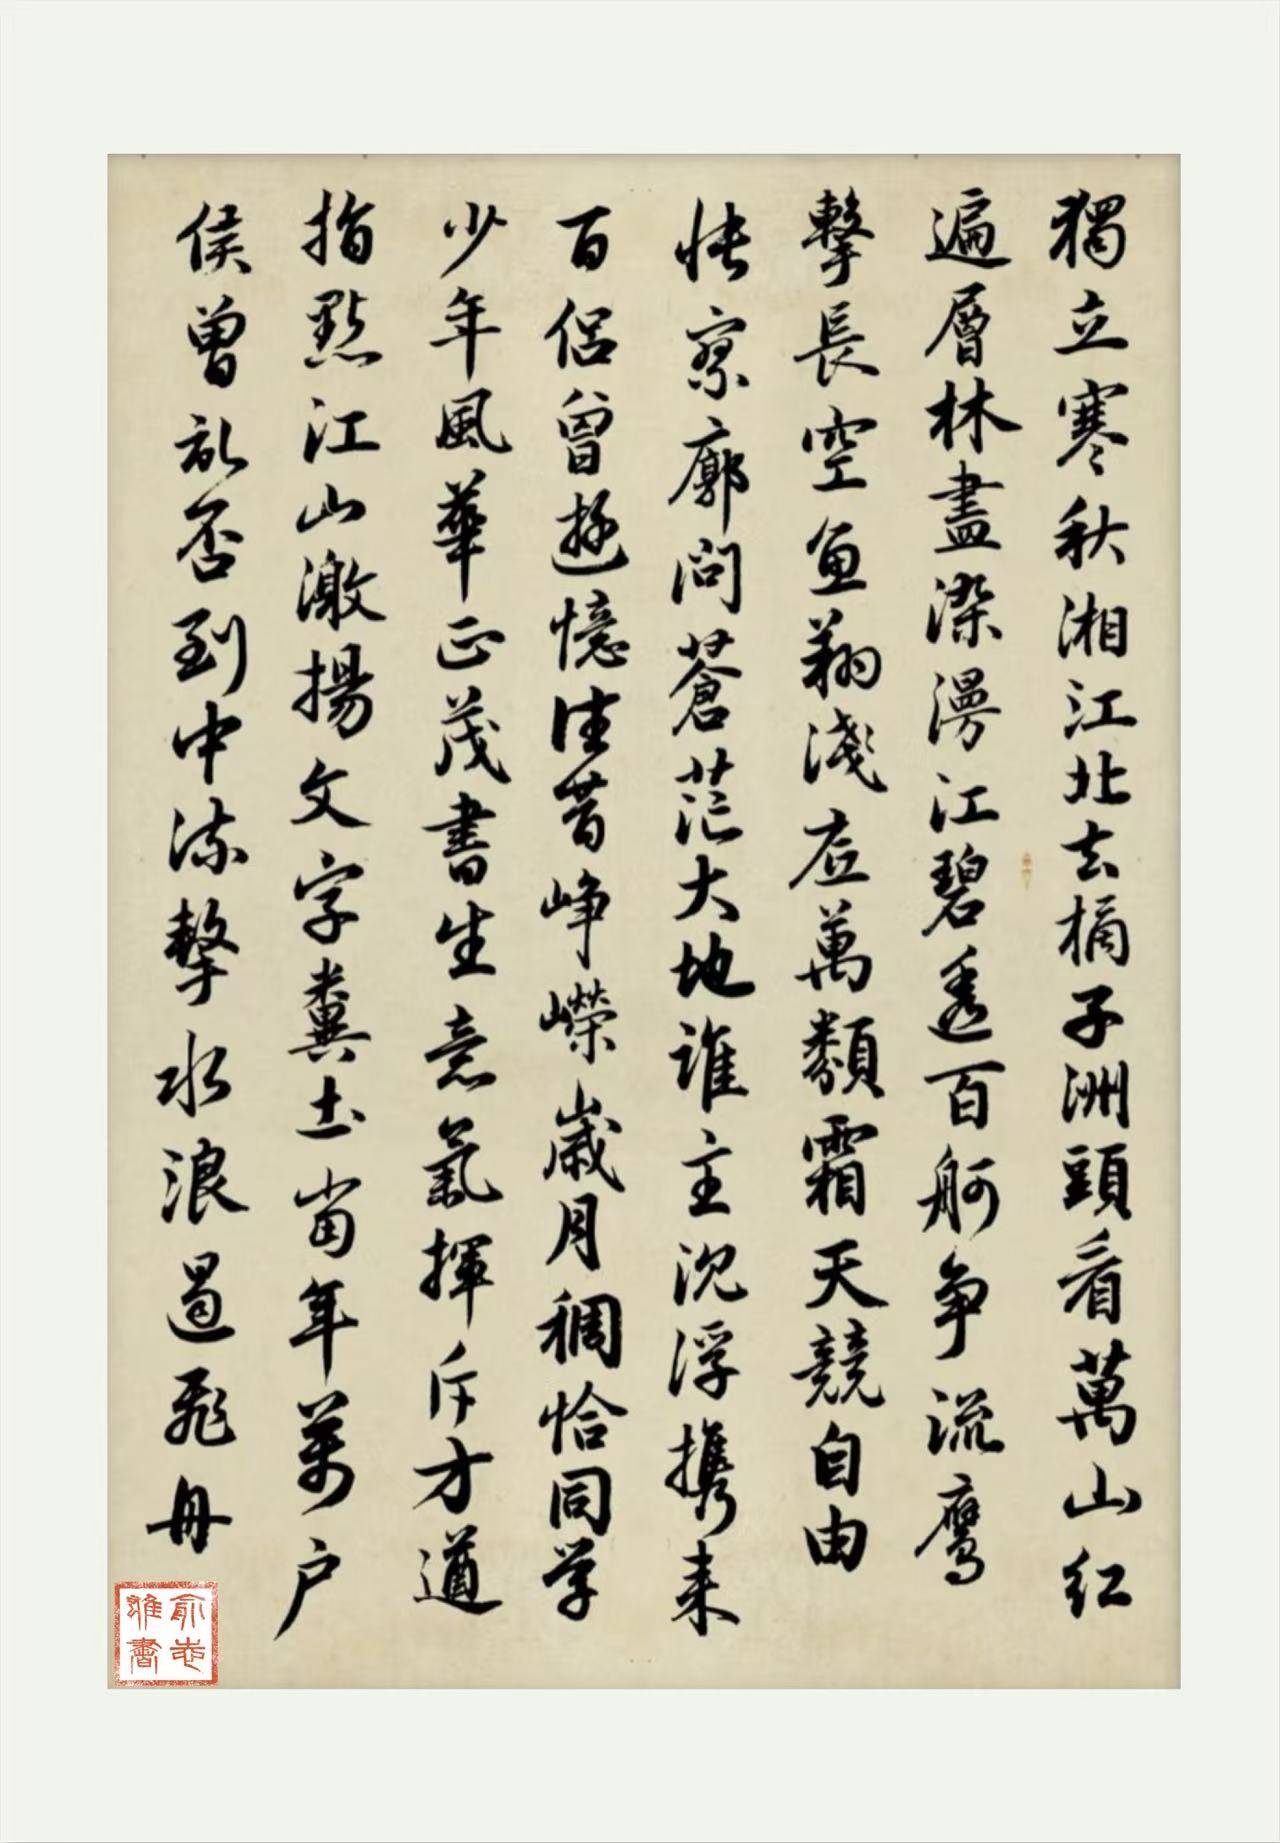 獨立寒秋湘江北去橘子洲頭看萬山紅
遍層林盡染漫江碧透百舸争流鷹
擊長空魚翔淺底萬類霜天競自由
悵寥廓問蒼茫大地誰主沉浮攜来
百侣曾遊憶往昔峥嶸歲月稠恰同学
少年風華正茂書生意氣揮斥方遒
指點江山激揚文字糞土當年萬户
侯曾記否到中流擊水浪遏飛舟